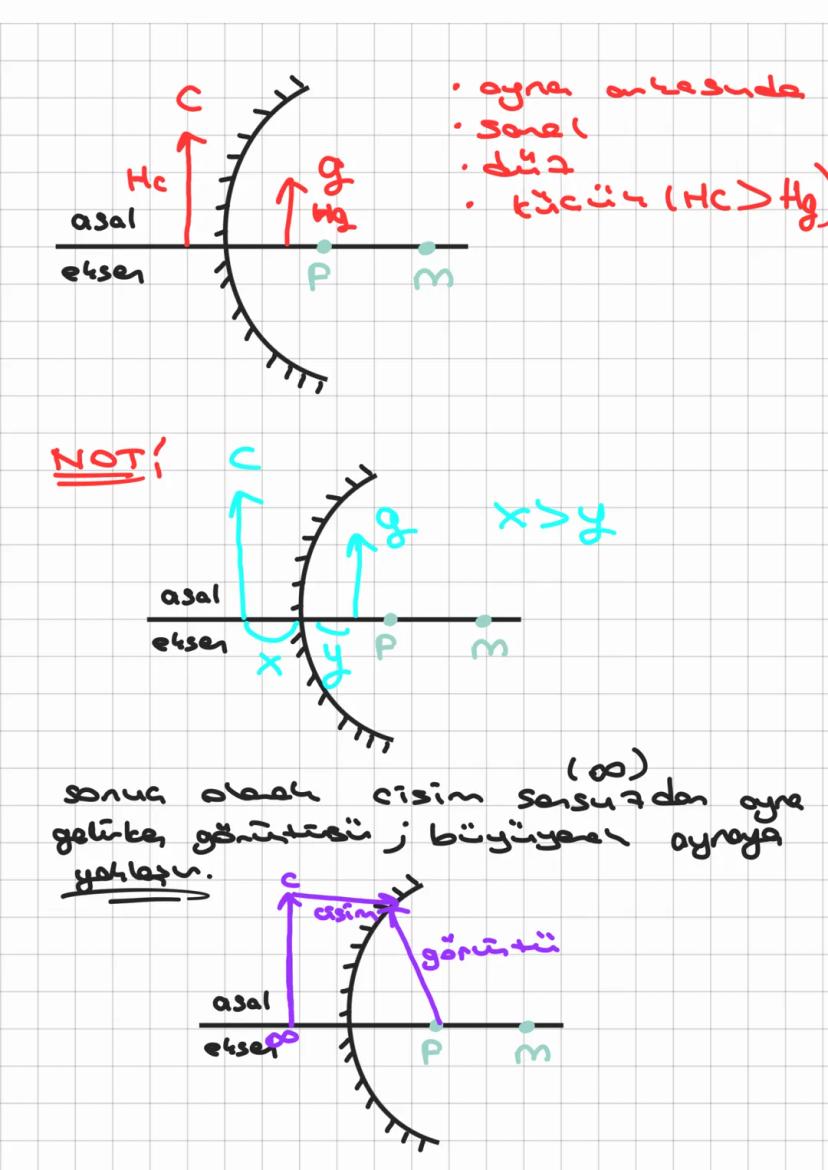 C
• ayna arkasında
• sanal
• düz
Hc
g
• küçük (Hc > Hg)
Hg
asal
eksen
P
m
NOT!
C
g
x > y
asal
eksen
P
m
x
y
(∞)
sonuç olarak cisim sonsuzdan ayna
gelirken görüntüsü ; büyüyerek aynaya
yaklaşır.
C
cisim
görüntü
asal
∞
eksen
P
m